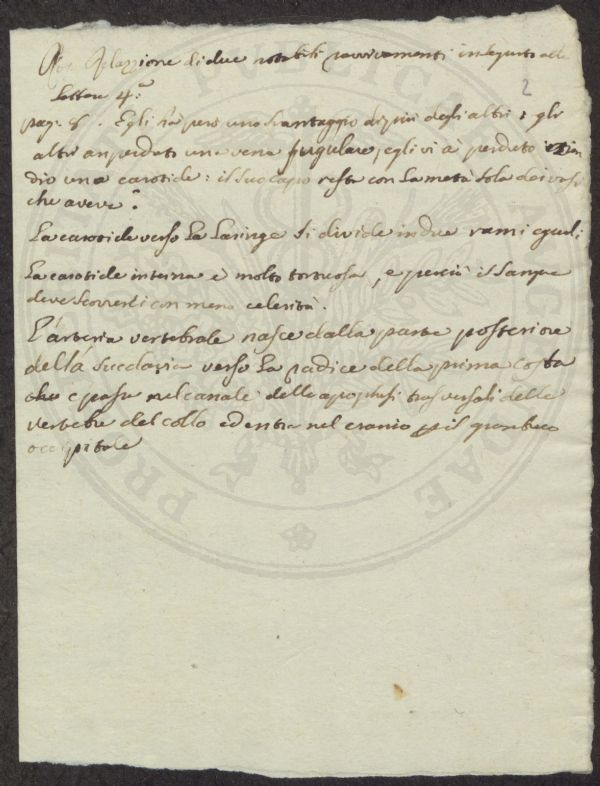 Relazzione di due notabili ravvivamenti in seguito alla
2
Lettera 4.a
pag. 8. Egli ha pero uno svantaggio di più degli altri: gli
altri an perduti una vena jugulare, egli vi a perduto
dio una carotide: il suo capo resta con la metà sola dei vasi
che aveva.
La carotide verso la Laringe si divide in due rami eguali
La carotide interna è molto tortuosa, e perciò il Sangue
deve scorrerli con meno celerità.
L'arteria vertebrale nasce dalla parte posteriore
della succlavia verso la radice della prima costa
che e passa nel canale delle apophisi trasversali delle
vertebre del collo ed entra nel cranio p il gran buco
occipitale